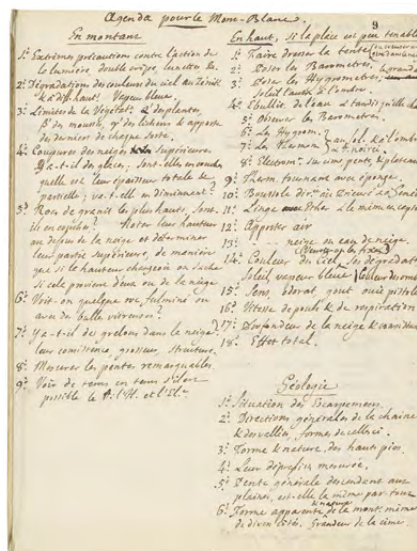 Agenda pour le Mont-Blanc.
9
En montant
1° Extrèmes précautions contre l'action de
la lumière, double crêpe, lunettes &c.
2° Dégradation des couleurs du ciel au Zénith
& à diff. haut. Vapeur bleue.
3° Limites de la Végétat. des plantes,
des mousses, des lichens & apporter
des derniers de chaque sorte.
4° Coupures des neiges supérieures
Y a-t-il des glaces, sont-elles en
quelle est leur épaisseur totale &
partielle; va-t-elle en diminuant?
5° Rocs de granit les plus hauts, sont-
ils en coquille? Noter leur hauteur
au dessus de la neige et déterminer
leur partie supérieure, de manière
que si la hauteur changeoit on sache
si cela provient d'eux ou de la neige
6° Voit-on quelque roc fulminé ou
avec des bulles vitreuses?
7° Y a-t-il des grelons dans la neige?
leur consistence, grosseur, structure.
8° Mesurer les pentes remarquables
9° Voir de tems en tems s'il est
possible le T. l'H. et l'El.
En haut, si la place est peu tenable
1° Faire dresser la tente
2° Poser les Barometres.
3° Poser les Hygrometres,
Soleil l'autre à l'ombre.
4° Ebullit. de l'eau & tandis qu'elle
5° Observer les Barometres.
6° Les Hygrom.
7° Les Thermom. au sol. & à l'ombre
8° Electrom. sur une pente, & plateau
9° Therm. tournant avec éponge.
10° Boussole
11° Linge
12° Apporter air
13° neige ou eau de neige
14° Couleur du Ciel, ses dégradat.
Soleil, vapeur bleue
15° Sons, odorat, gout ouïe pistolet
16° Vitesse de pouls & de respiration
17° Profondeur de la neige &
18° Effet total.
Géologie
1° Situation des Escarpemens.
2° Directions générales de la chaine
& des vallées, formes de celles-ci.
3° Forme & nature des hauts pics.
4° Leur dépression mesurée.
5° Pente générale descendant aux
plaines, est-elle la même par tout
& nature
6° Forme apparente de la mont. même
de divers côtés. Grandeur de la cime.